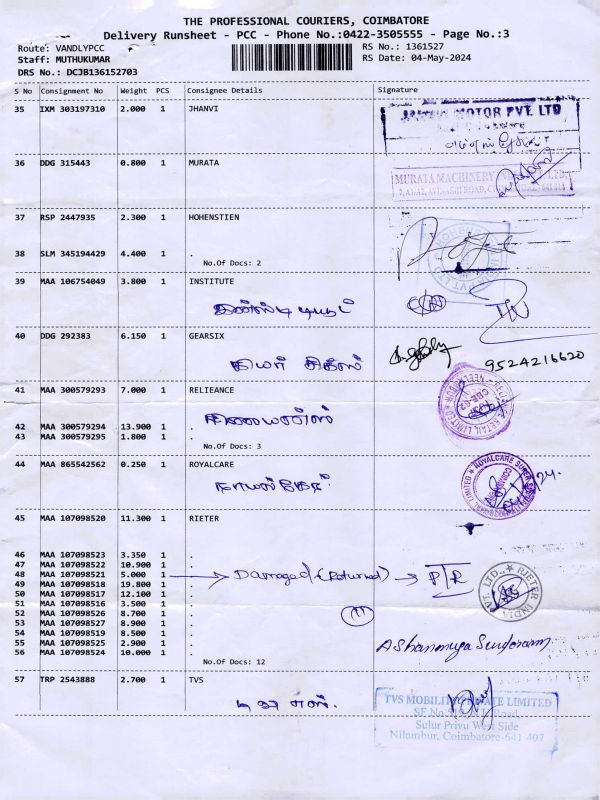 THE PROFESSIONAL COURIERS, COIMBATORE
Delivery Runsheet - PCC - Phone No.:0422-3505555 - Page No.:3
Route: VANDLYPCC RS No.: 1361527
Staff: MUTHUKUMAR RS Date: 04-May-2024
DRS No.: DCJB136152703
S No Consignment No Weight PCS Consignee Details Signature
35 IXM 303197310 2.000 1 JHANVI
MOTOR PVT. LTD
36 DDG 315443 0.800 1 MURATA
MURATA MACHINERY
37 RSP 2447935 2.300 1 HOHENSTIEN
38 SLM 345194429 4.400 1 .
No.Of Docs: 2
39 MAA 106754049 3.800 1 INSTITUTE
40 DDG 292383 6.150 1 GEARSIX
கியர் சிக்ஸ் 9524216620
41 MAA 300579293 7.000 1 RELIEANCE
42 MAA 300579294 13.900 1 .
43 MAA 300579295 1.800 1 .
No.Of Docs: 3
44 MAA 865542562 0.250 1 ROYALCARE
45 MAA 107098520 11.300 1 RIETER
46 MAA 107098523 3.350 1 .
47 MAA 107098522 10.900 1 .
48 MAA 107098521 5.000 1 . Damaged (Returned)
49 MAA 107098518 19.800 1 .
50 MAA 107098517 12.100 1 .
51 MAA 107098516 3.500 1 .
52 MAA 107098526 8.700 1 .
53 MAA 107098527 8.900 1 .
54 MAA 107098519 8.500 1 .
55 MAA 107098525 2.900 1 .
56 MAA 107098524 10.000 1 .
11
RIETER INDIA PVT. LTD.
No.Of Docs: 12
57 TRP 2543888 2.700 1 TVS
TVS MOBILITY PRIVATE LIMITED
Sulur Privu West Side
Nilambur, Coimbatore-641 407